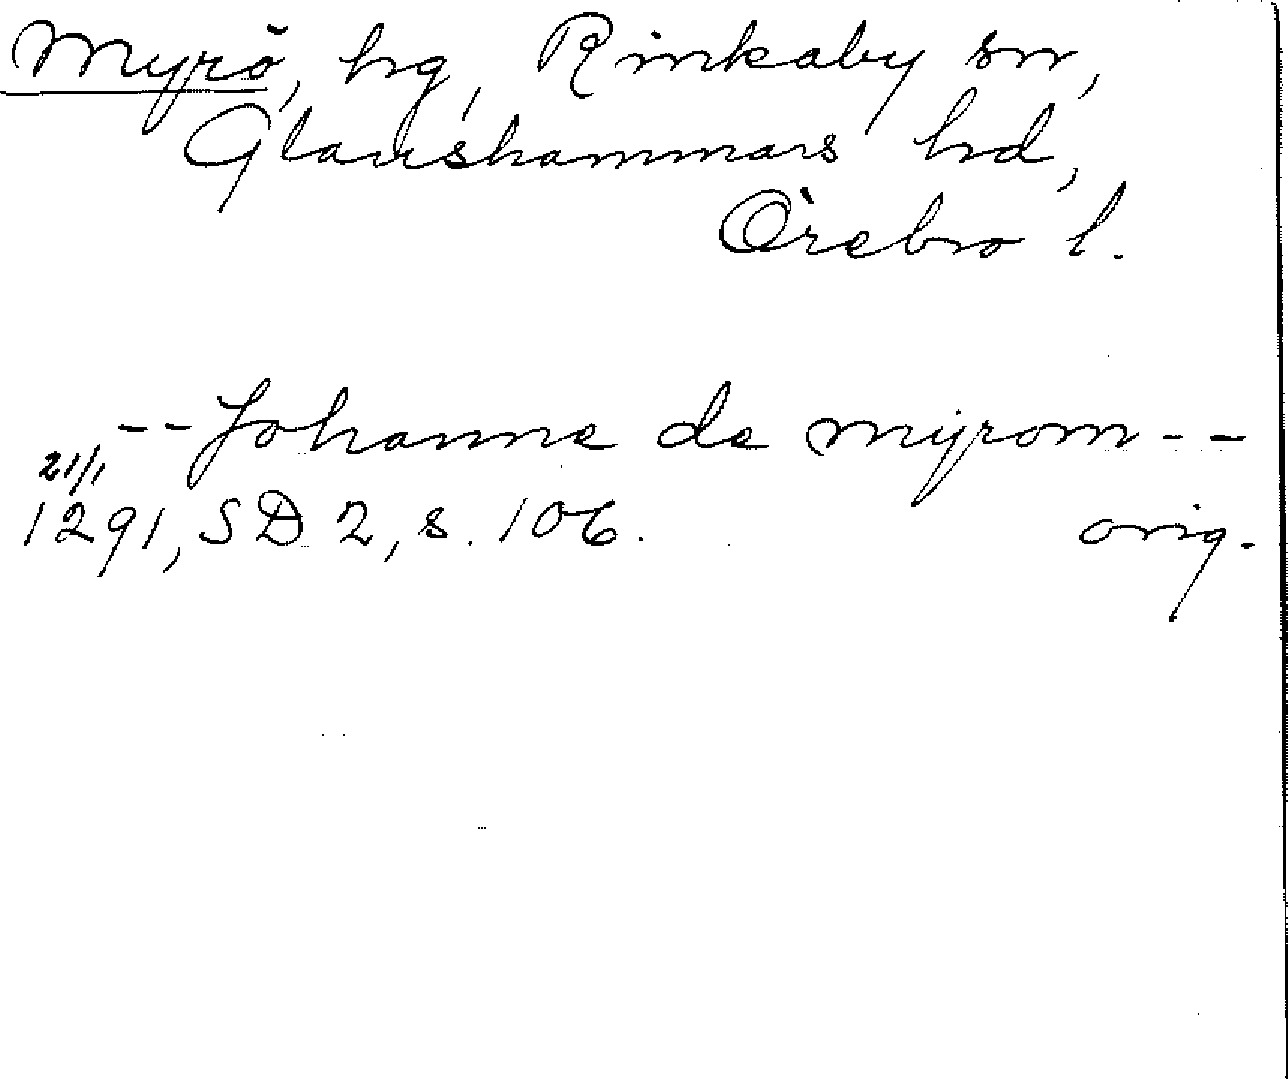 Myrö, hg, Rinkaby sn,
Glanshammars hd,
Örebro l.
-- Johanne de myrom --
21/1
1291, SD 2, s. 106. orig.